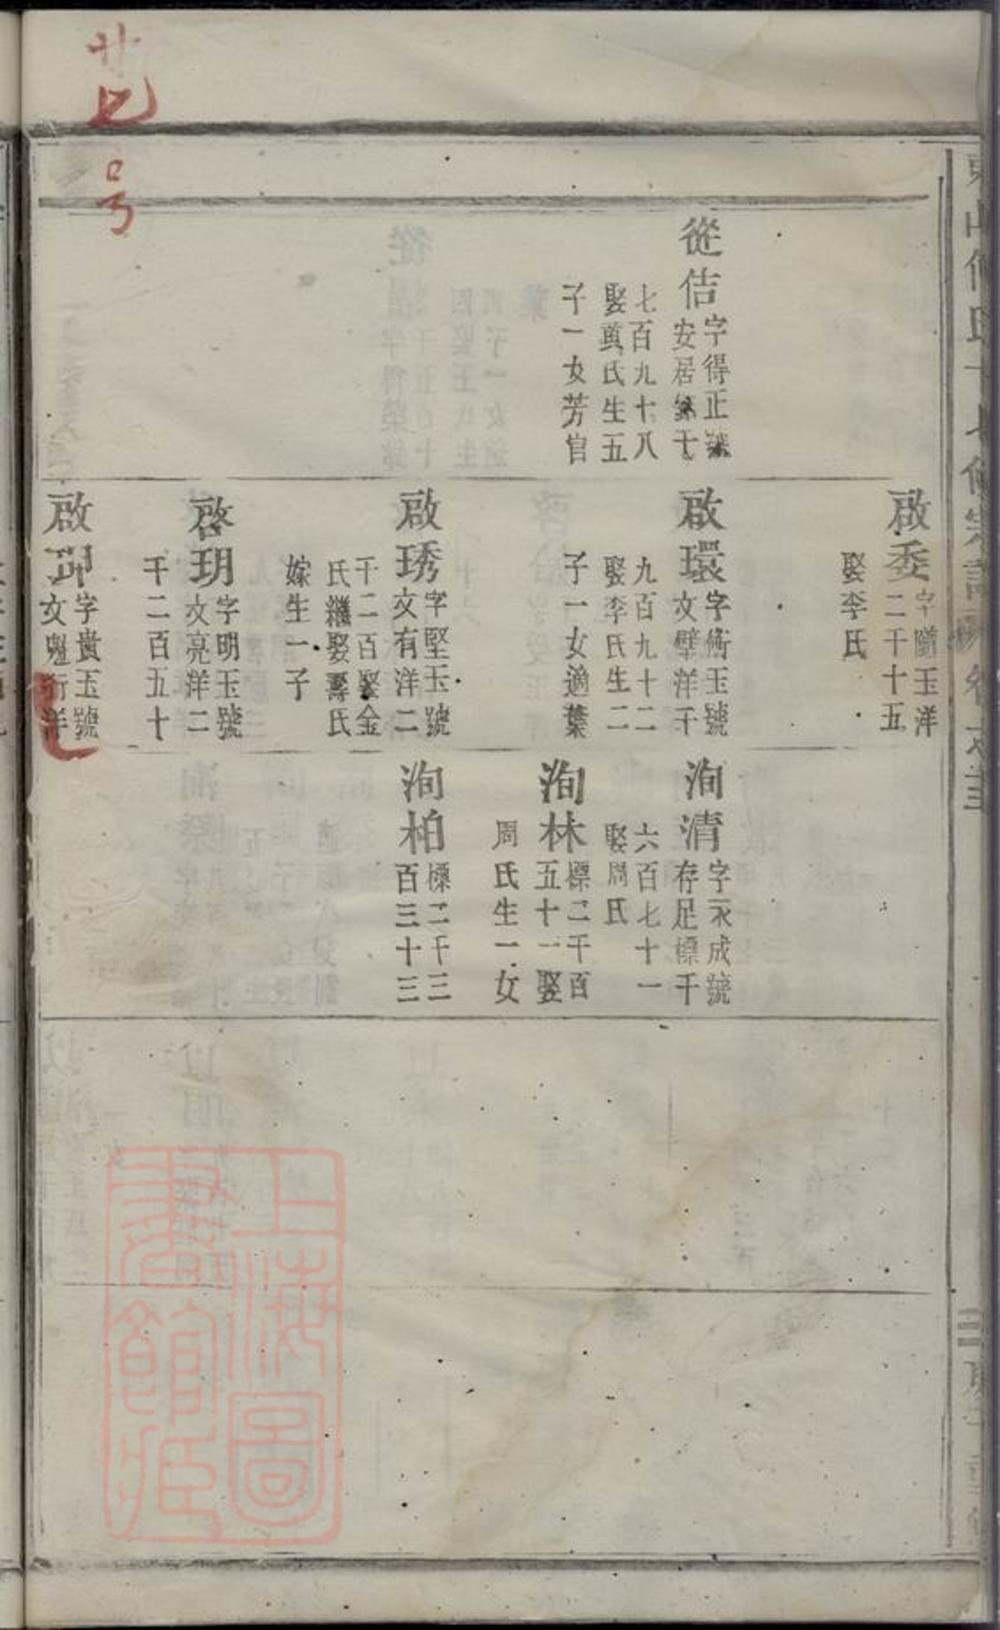 廿七号
從佶
字得正號
安居緣十
七百九十八
娶奠氏生五
子一女芳官
啟委
字隨玉洋
二千十五
娶李氏
啟環
字衡玉號
文璧洋千
九百九十二
娶李氏生二
子一女適葉
啟琇
字堅玉號
文有洋二
千二百娶金
氏繼娶壽氏
嫁生一子
啓玥
字明玉號
文亮洋二
千二百五十
啟
字貴玉號
文魁行洋
洵清
字永成號
存足標千
六百七十一
娶周氏
洵林
標二千百
五十一娶
周氏生一女
洵柏
標二千三
百三十三
上海圖
書館藏